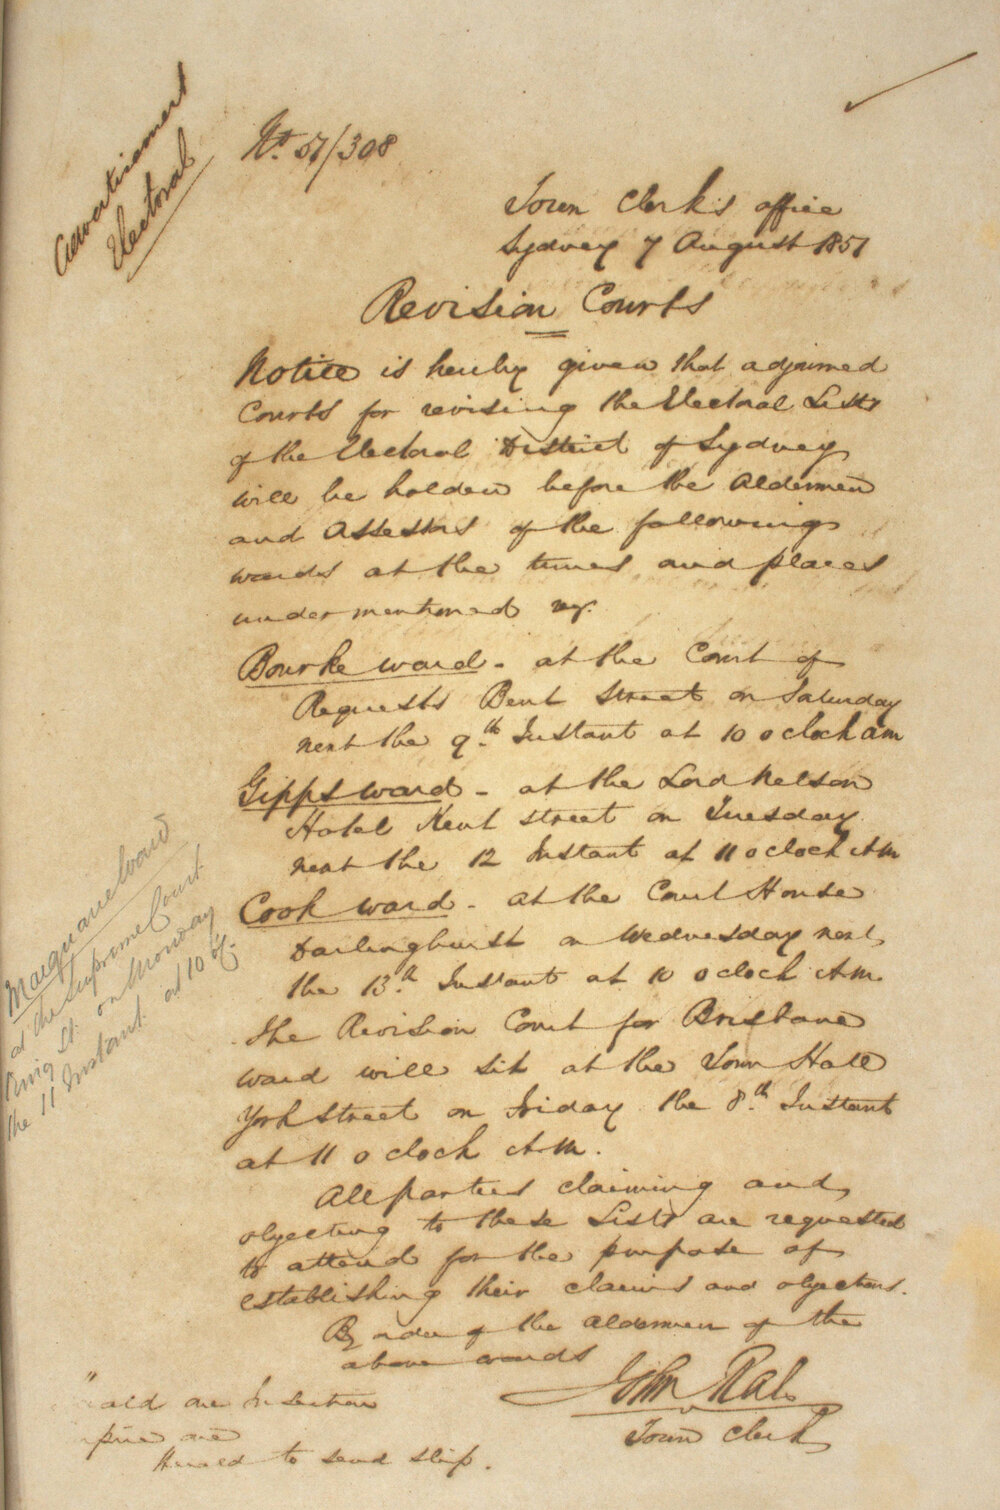 Advertisement
Electoral
No. 51/308
Town Clerk's office
Sydney 7 August 1851
Revision Courts
Notice is hereby given that adjourned
Courts for revising the Electoral Lists
of the Electoral District of Sydney
will be holden before the Aldermen
and Assessors of the following
wards at the times and places
undermentioned viz.
Bourke ward - at the Court of
Requests Bent Street on Saturday
next the 9th Instant at 10 o clock am
Gipps ward - at the Lord Nelson
Hotel Kent street on Tuesday
next the 12 Instant at 11 o clock AM
Cook ward - at the Court House
Darlinghurst on Wednesday next
the 13th Instant at 10 o clock AM.
Macquarie Ward
at the Supreme Court
King St. on Monday
the 11 Instant at 10 o'C.
The Revision Court for Brisbane
ward will sit at the Town Hall
York Street on Friday the 8th Instant
at 11 o clock AM.
All parties claiming and
objecting to these Lists are requested
to attend for the purpose of
establishing their claims and objections.
By order of the Aldermen of the
above wards
John Rae
Town Clerk
ald one Insertion
pire one
Herald to send slip.